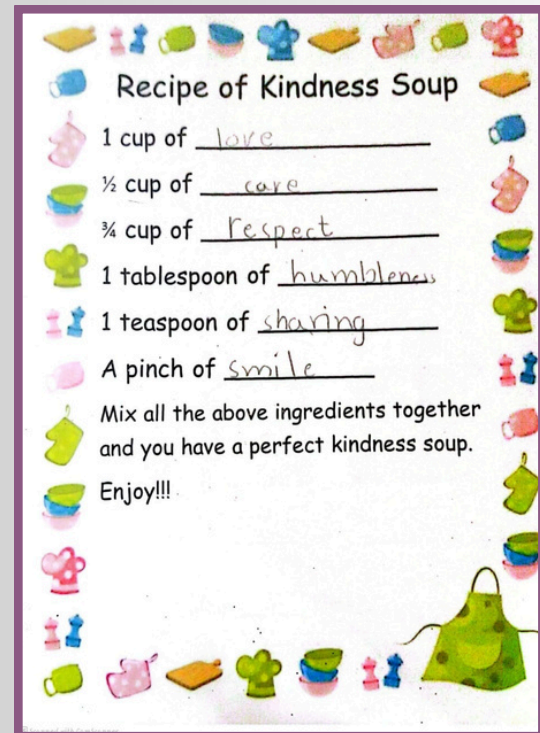 Recipe of Kindness Soup
1 cup of love
½ cup of care
¾ cup of respect
1 tablespoon of humbleness
1 teaspoon of sharing
A pinch of smile
Mix all the above ingredients together
and you have a perfect kindness soup.
Enjoy!!!